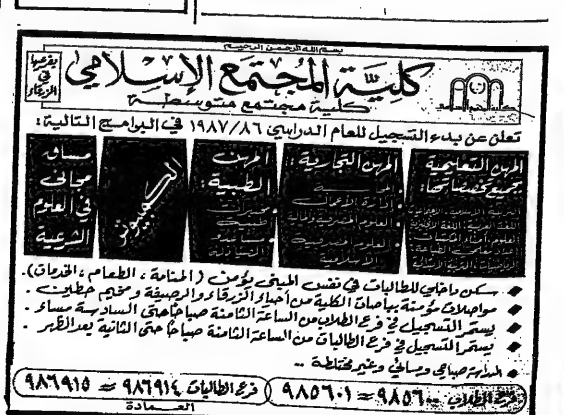 بسم الله الرحمن الرحيم
كلية المجتمع الإسلامي
بفرعيها في الزرقاء
كلية مجتمع متوسطة
تعلن عن بدء التسجيل للعام الدراسي ١٩٨٧/٨٦ في البرامج التالية:
المهن التعليمية بجميع تخصصاتها:
المهن التجارية:
إدارة الأعمال
العلوم المصرفية والمالية
العلوم المصرفية الإسلامية
المهن الطبية:
مختبرات طبية
الكمبيوتر
مساق مجالى في العلوم الشرعية
سكن داخلي للطالبات في نفس المبنى يؤمن (المنامة ، الطعام ، الخدمات).
مواصلات مؤمنة بباصات الكلية من أحياء الزرقاء والرصيفة ومخيم حطين.
يستمر التسجيل في فرع الطلاب من الساعة الثامنة صباحاً حتى السادسة مساء.
يستمر التسجيل في فرع الطالبات من الساعة الثامنة صباحاً حتى الثانية بعد الظهر.
الدراسة صباحي ومسائي وغير مختلطة ..
فرع الطلاب ٩٨٥٦٠٠ = ٩٨٥٦٠١
فرع الطالبات ٩٨٦٩١٤ = ٩٨٦٩١٥
العمادة